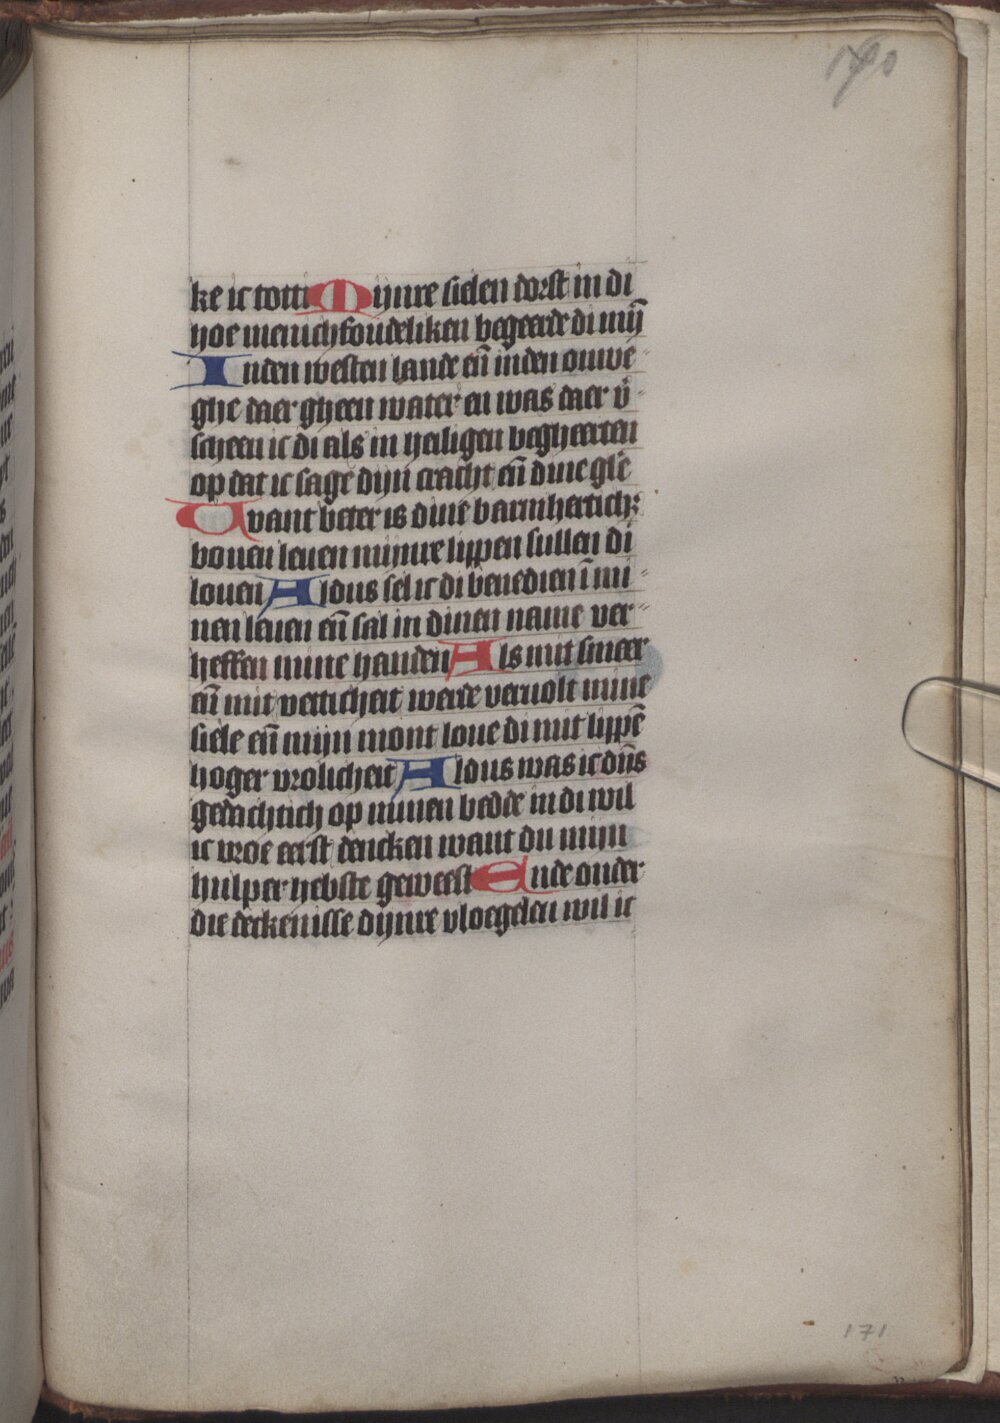 170
ke ic totti Mijnre sielen dorst in di
hoe menichfoudeliken begeerde di mijn̄
Inden westen lande en̄ inden onwe
ghe daer gheen water en was daer v̄
scheen ic di als in heiligen vegheerten
op dat ic sage dijn cracht en̄ dine gl̄e
Want beter is dine barmherticħ
bouen leuen mijnre lippen sullen di
louen Aldus sel ic di benedien ī mi
nen leuen en̄ sal in dinen name ver
heffen mine handen Als mit smeer
en̄ mit vetticheit werde veruolt mine
siele en̄ mijn mont loue di mit lippē
hoger vrolicheit Aldus was ic dijns
gedachtich op minen bedde in di wil
ic vroe eerst dencken want du mijn
hulper hebste geweest Ende onder
die deckenisse dijnre vloegelen wil ic
171